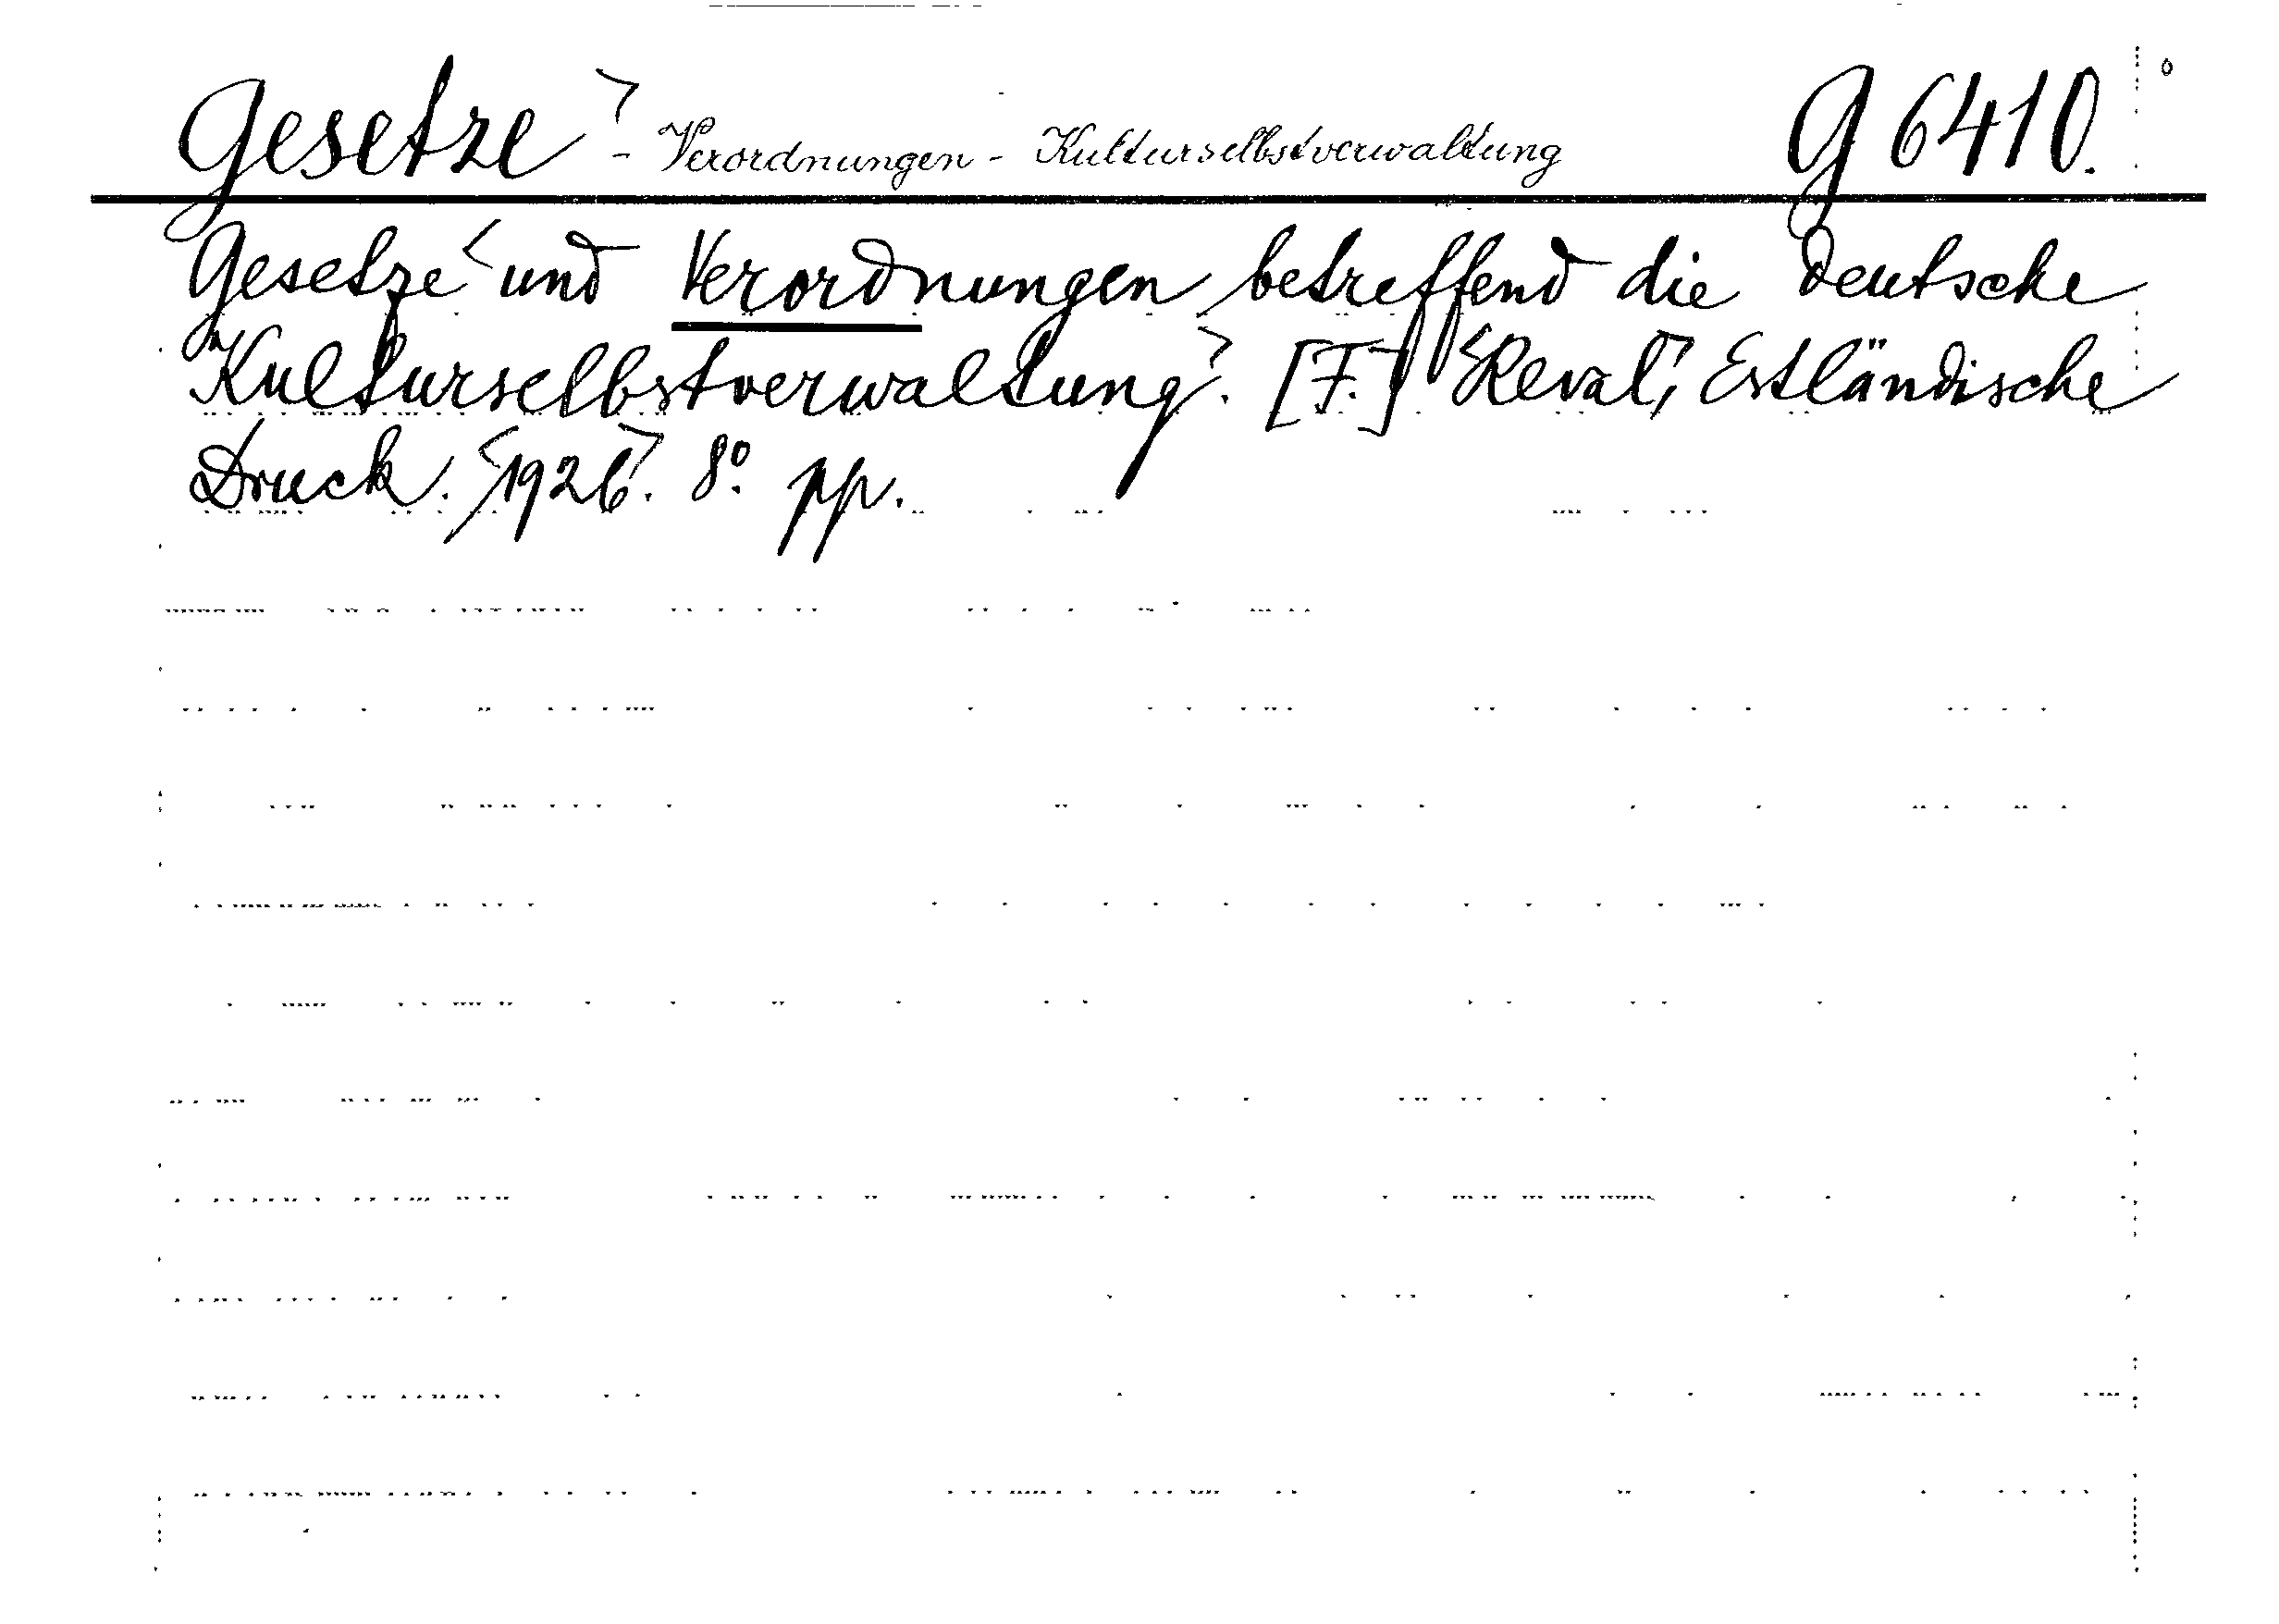 Gesetze - Verordnungen - Kulturselbstverwaltung G 6410.
Gesetze und Verordnungen betreffend die deutsche
Kulturselbstverwaltung. [F.] Reval, Estländische
Druck. 1926. 8º. pp.